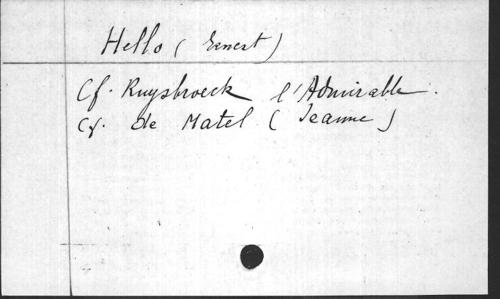 Hello (Ernest)
Cf. Ruysbroeck l'Admirable.
Cf. de Matel (Jeanne)